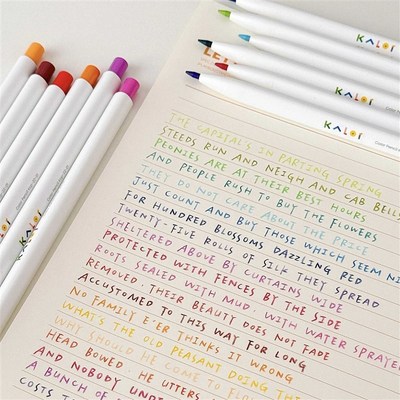 KALOR
KALOR
KALOR
LET
THE CAPITAL'S IN PARTING SPRING
STEEDS RUN AND NEIGH AND CAB BELL
PEONIES ARE AT THEIR BEST HOURS
AND PEOPLE RUSH TO BUY THE FLOWERS
THEY DO NOT CARE ABOUT THE PRICE
JUST COUNT AND BUY THOSE WHICH SEEM NI
FOR HUNDRED BLOSSOMS DAZZLING RED
TWENTY-FIVE ROLLS OF SILK THEY SPREAD
SHELTERED ABOVE BY CURTAINS WIDE
PROTECTED WITH FENCES BY THE SIDE
ROOTS SEALED WITH MUD. WITH WATER SPRAYE
REMOVED. THEIR BEAUTY DOES NOT FADE
ACCUSTOMED TO THIS WAY FOR LONG
NO FAMILY E'ER THINKS IT WRONG
WHAT'S THE OLD PEASANT DOING TH
WHY SHOULD HE COME TO FLO
HEAD BOWED. HE UTTERS
AND NOBODY UND
A BUNCH OF
COSTS T
KALOR
KALOR